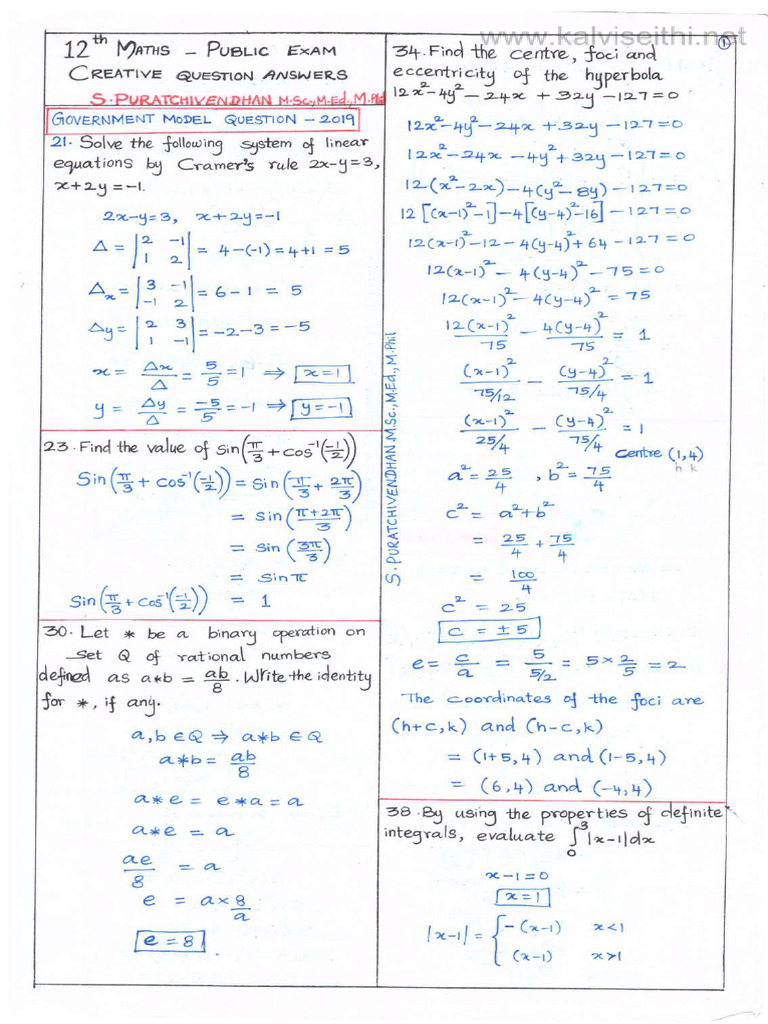 www.kalviseithi.net
1
12th MATHS – PUBLIC EXAM
CREATIVE QUESTION ANSWERS
S. PURATCHIVENDHAN M.Sc., M.Ed., M.Phil
GOVERNMENT MODEL QUESTION – 2019
21. Solve the following system of linear
equations by Cramer's rule 2x-y=3,
x+2y=-1.
2x-y=3, x+2y=-1
Δ = |2 -1; 1 2| = 4-(-1) = 4+1 = 5
Δx = |3 -1; -1 2| = 6-1 = 5
Δy = |2 3; 1 -1| = -2-3 = -5
x = Δx/Δ = 5/5 = 1 ⇒ x=1
y = Δy/Δ = -5/5 = -1 ⇒ y=-1
23. Find the value of sin(π/3 + cos⁻¹(-1/2))
Sin(π/3 + cos⁻¹(-1/2)) = Sin(π/3 + 2π/3)
= sin(π+2π/3)
= sin(3π/3)
= sin π
Sin(π/3 + cos⁻¹(-1/2)) = 1
30. Let * be a binary operation on
set Q of rational numbers
defined as a*b = ab/8. Write the identity
for *, if any.
a,b ∈ Q ⇒ a*b ∈ Q
a*b = ab/8
a*e = e*a = a
a*e = a
ae/8 = a
e = a × 8/a
e = 8
34. Find the centre, foci and
eccentricity of the hyperbola
12x²-4y²-24x+32y-127=0
12x²-4y²-24x+32y-127=0
12x²-24x-4y²+32y-127=0
12(x²-2x)-4(y²-8y)-127=0
12[(x-1)²-1]-4[(y-4)²-16]-127=0
12(x-1)²-12-4(y-4)²+64-127=0
12(x-1)²-4(y-4)²-75=0
12(x-1)²-4(y-4)²=75
12(x-1)²/75 - 4(y-4)²/75 = 1
(x-1)²/75/12 - (y-4)²/75/4 = 1
(x-1)²/25/4 - (y-4)²/75/4 = 1
centre (1,4)
h k
a² = 25/4, b² = 75/4
c² = a²+b²
= 25/4 + 75/4
= 100/4
c² = 25
c = ±5
e = c/a = 5/5/2 = 5 × 2/5 = 2
The coordinates of the foci are
(h+c,k) and (h-c,k)
= (1+5,4) and (1-5,4)
= (6,4) and (-4,4)
S. PURATCHIVENDHAN M.Sc., M.Ed., M.Phil
38. By using the properties of definite
integrals, evaluate ∫₀³ |x-1| dx
x-1=0
x=1
|x-1| = { -(x-1) x<1
(x-1) x>1